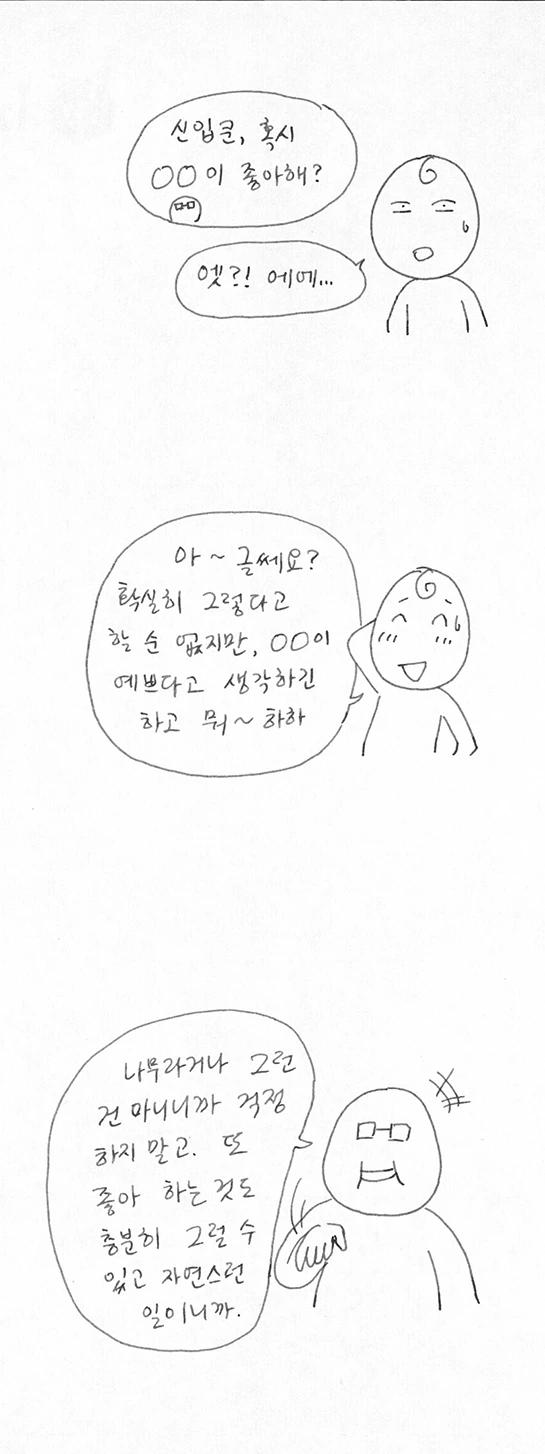 신입쿤, 혹시
○○이 좋아해?
엣?! 에에...
아~ 글쎄요?
확실히 그렇다고
할 순 없지만, ○○이
예쁘다고 생각하긴
하고 뭐~ 하하
나무라거나 그런
건 아니니까 걱정
하지 말고. 또
좋아 하는 것도
충분히 그럴 수
있고 자연스런
일이니까.